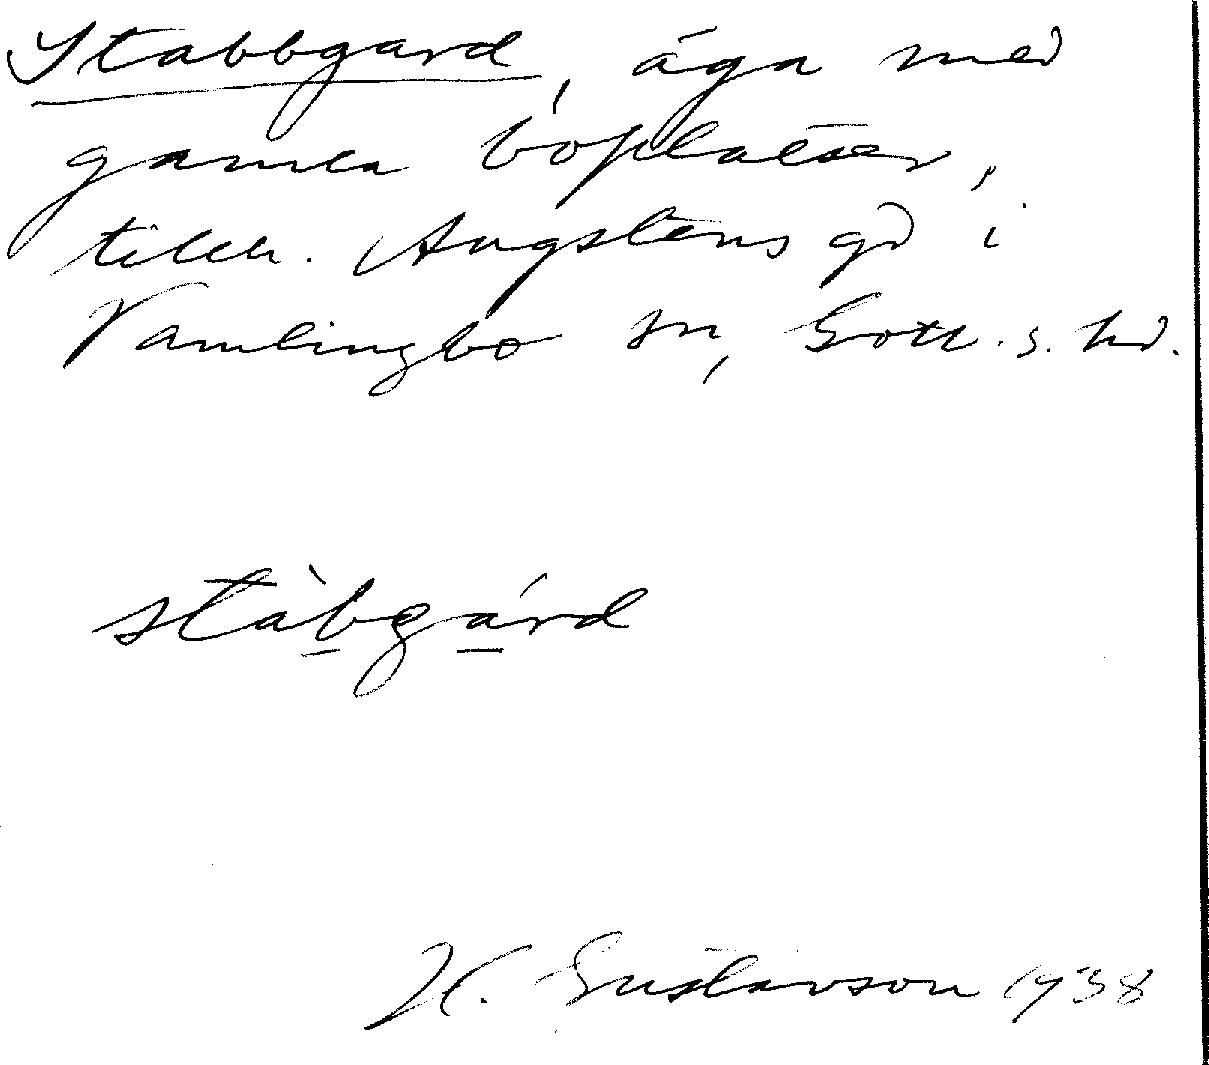 Stabbgard, äga med
gamla boplatser,
tillh. Augstens gd i
Vamlingbo sn, Gotl. s. hd.
stàbgárd
H. Gustavson 1938